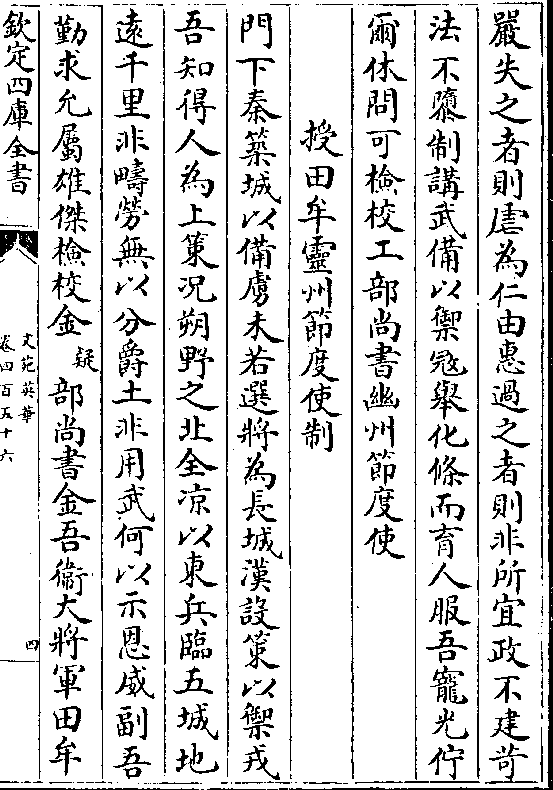 嚴失之者則虐為仁由惠過之者則非所宜政不建苛
法不隳制講武備以禦寇舉化條而育人服吾寵光佇
爾休問可檢校工部尚書幽州節度使
授田牟靈州節度使制
門下秦築城以備虜未若選將為長城漢設策以禦戎
吾知得人為上策況朔野之北全涼以東兵臨五城地
遠千里非疇勞無以分爵土非用武何以示恩威副吾
勤求允屬雄傑檢校金疑部尚書金吾衞大將軍田牟
欽定四庫全書
文苑英華
卷四百五十六
四